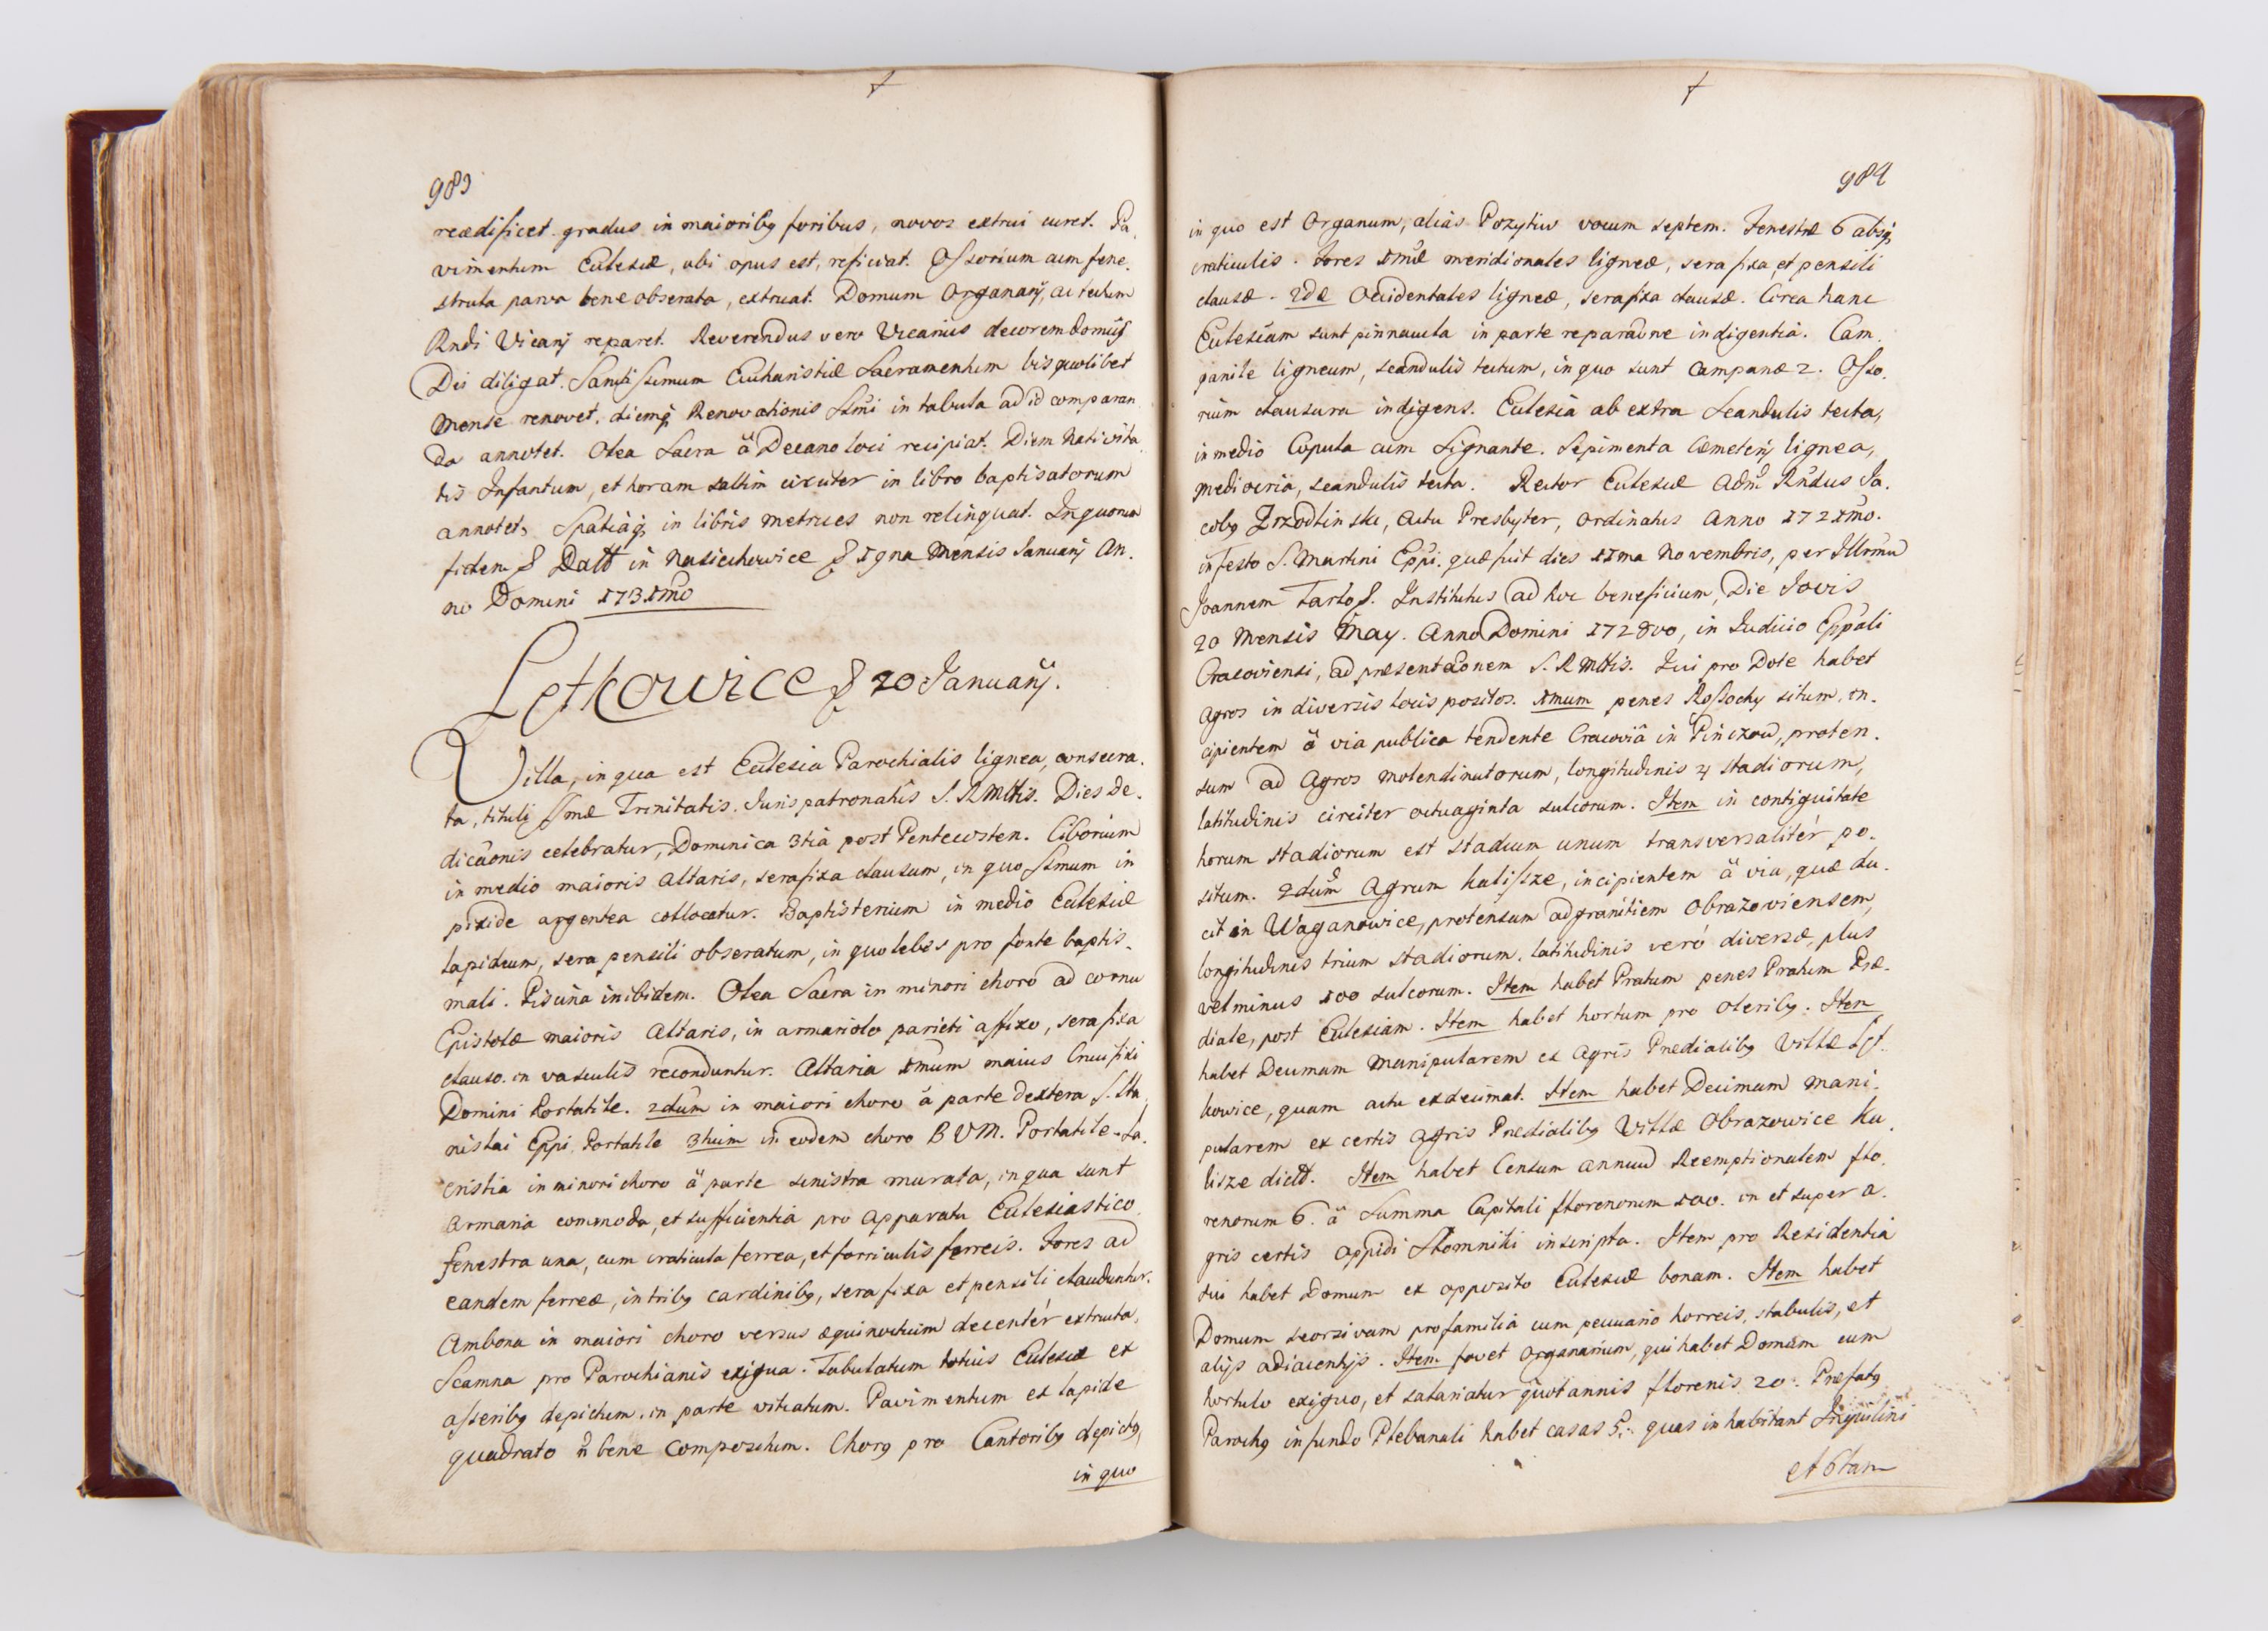 983
reædificet gradus in maioribq foribus, novos extrui curet. Pa-
vimentum Ecclesiæ, ubi opus est, reficiat. Ossorium cum fene-
strula parva bene obserata, extruat. Domum Organarij, ac tectum
Rndi Vicarij reparet. Reverendus vero Vicarius decorem domus
Dei diligat. Sanctissimum Eucharistiæ Sacramentum bis quolibet
Mense renovet, diemq; Renovationis SSmi in tabula ad id comparan
da annotet. Olea Sacra â Decano loci recipiat. Diem Nativita
tis Infantum, et horam saltim circiter in libro baptisatorum
annotet, Spatiaq; in libris Metrices non relinquat. In quorum
fidem & Datt in Nasiechowice & 19na Mensis Januarij An-
no Domini 1731mo
Letkowice & 20 Januarij.
Villa, in qua est Ecclesia Parochialis lignea, consecra-
ta, tituli SSmæ Trinitatis. Juris patronatûs S. R Mttis. Dies De-
dicaonis celebratur, Dominica 3tia post Pentecosten. Ciborium
in medio maioris Altaris, sera fixa clausum, in quo SSmum in
pixide argentea collocatur. Baptisterium in medio Ecclesiæ
lapideum, sera pensili obseratum, in quo lebes pro fonte baptis-
mali. Piscina inibidem. Olea Sacra in minori choro ad cornu
Epistolæ maioris Altaris, in armariolo parieti affixo, sera fixa
clauso, in vasculis reconduntur. Altaria 1mum maius Crucifixi
Domini Portatile. 2dum in maiori choro â parte dextera S. Sta
nislai Eppi Portatile 3tium in eodem choro B V M. Portatile. Sa-
cristia in minori choro â parte sinistra murata, in qua sunt
Armaria commoda, et sufficientia pro Apparatu Ecclesiastico
fenestra una, cum craticula ferrea, et forriculis ferreis. Fores ad
eandem ferreæ, in tribq cardinibq, sera fixa et pensili clauduntur.
Ambona in maiori choro versus æquinoctium decentèr extructa,
Scamna pro Parochianis exigua. Tabulatum totius Ecclesiæ ex
asseribq depictum, in parte vitiatum. Pavimentum ex lapide
quadrato ñ bene compositum. Chorq pro Cantoribq depictq,
in quo
984
in quo est Organum, aliàs Pozytiw vocum septem. Fenestræ 6 absq;
craticulis. Fores 1mæ meridionales ligneæ, sera fixa et pensili
clausæ. 2dæ Occidentales ligneæ, sera fixa clausæ. Circa hanc
Ecclesiam sunt pinnacula in parte reparaõne indigentia. Cam-
panile ligneum, scandulis tectum, in quo sunt Campanæ 2. Osso-
rium clausura indigens. Ecclesia ab extra Scandulis tecta,
in medio Copula cum Signante. Sepimenta Cæmeterij lignea,
mediocria, scandulis tecta. Rector Ecclesiæ Adm Rndus Ja-
cobq Zrzodlinski, Actu Presbyter, Ordinatus Anno 1721mo.
in festo S. Martini Eppi. quæ fuit dies 11ma Novembris, per Illrmu
Joannem Tarlo &. Institutus ad hoc beneficium, Die Jovis
20 Mensis May. Anno Domini 1728vo, in Judicio Eppali
Cracoviensi, ad præsentaõnem S. R Mttis. Qui pro Dote habet
Agros in diversis locis positos. 1mum penes Rossochy situm, in-
cipientem â via publica tendente Cracoviâ in Pinczow, proten-
sum ad Agros Molendinatorum, longitudinis 4 stadiorum,
latitudinis circiter octuaginta sulcorum. Item in contiguitate
horum stadiorum est stadium unum transversalitèr po-
situm. 2dum Agrum Kalissze, incipientem â via, quæ du-
cit in Waganowice, protensum ad granitiem Obrazoviensem,
longitudinis trium stadiorum, latitudinis verò diversæ, plus
vel minus 100 sulcorum. Item habet Pratum penes Pratum Præ-
diale, post Ecclesiam. Item habet hortum pro oleribq. Item
habet Decimam Manipularem ex Agris Prædialibq Villæ Let-
kowice, quam actu exdecimat. Item habet Decimam Mani-
pularem ex certis Agris Prædialibq Villæ Obrazowice Ka-
lisze dictt. Item habet Censum annuu Reemptionalem flo-
renorum 6. â Summa Capitali florenorum 100. in et super a-
gris certis Oppidi Słomniki inscripta. Item pro Residentia
sui habet Domum ex opposito Ecclesiæ bonam. Item habet
Domum seorsivam pro familia cum pecuario horreis, stabulis, et
alijs adiacentijs. Item fovet Organarium, qui habet Domum cum
hortulo exiguo, et salariatur quotannis florenis 20. Præfatq
Parochq in fundo Plebanali habet casas 5. quas inhabitant Inquilini
et 6tam